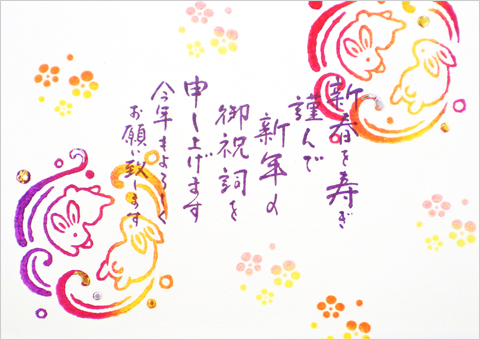 新春を寿ぎ
謹んで
新年の
御祝詞を
申し上げます
今年もよろしく
お願い致します